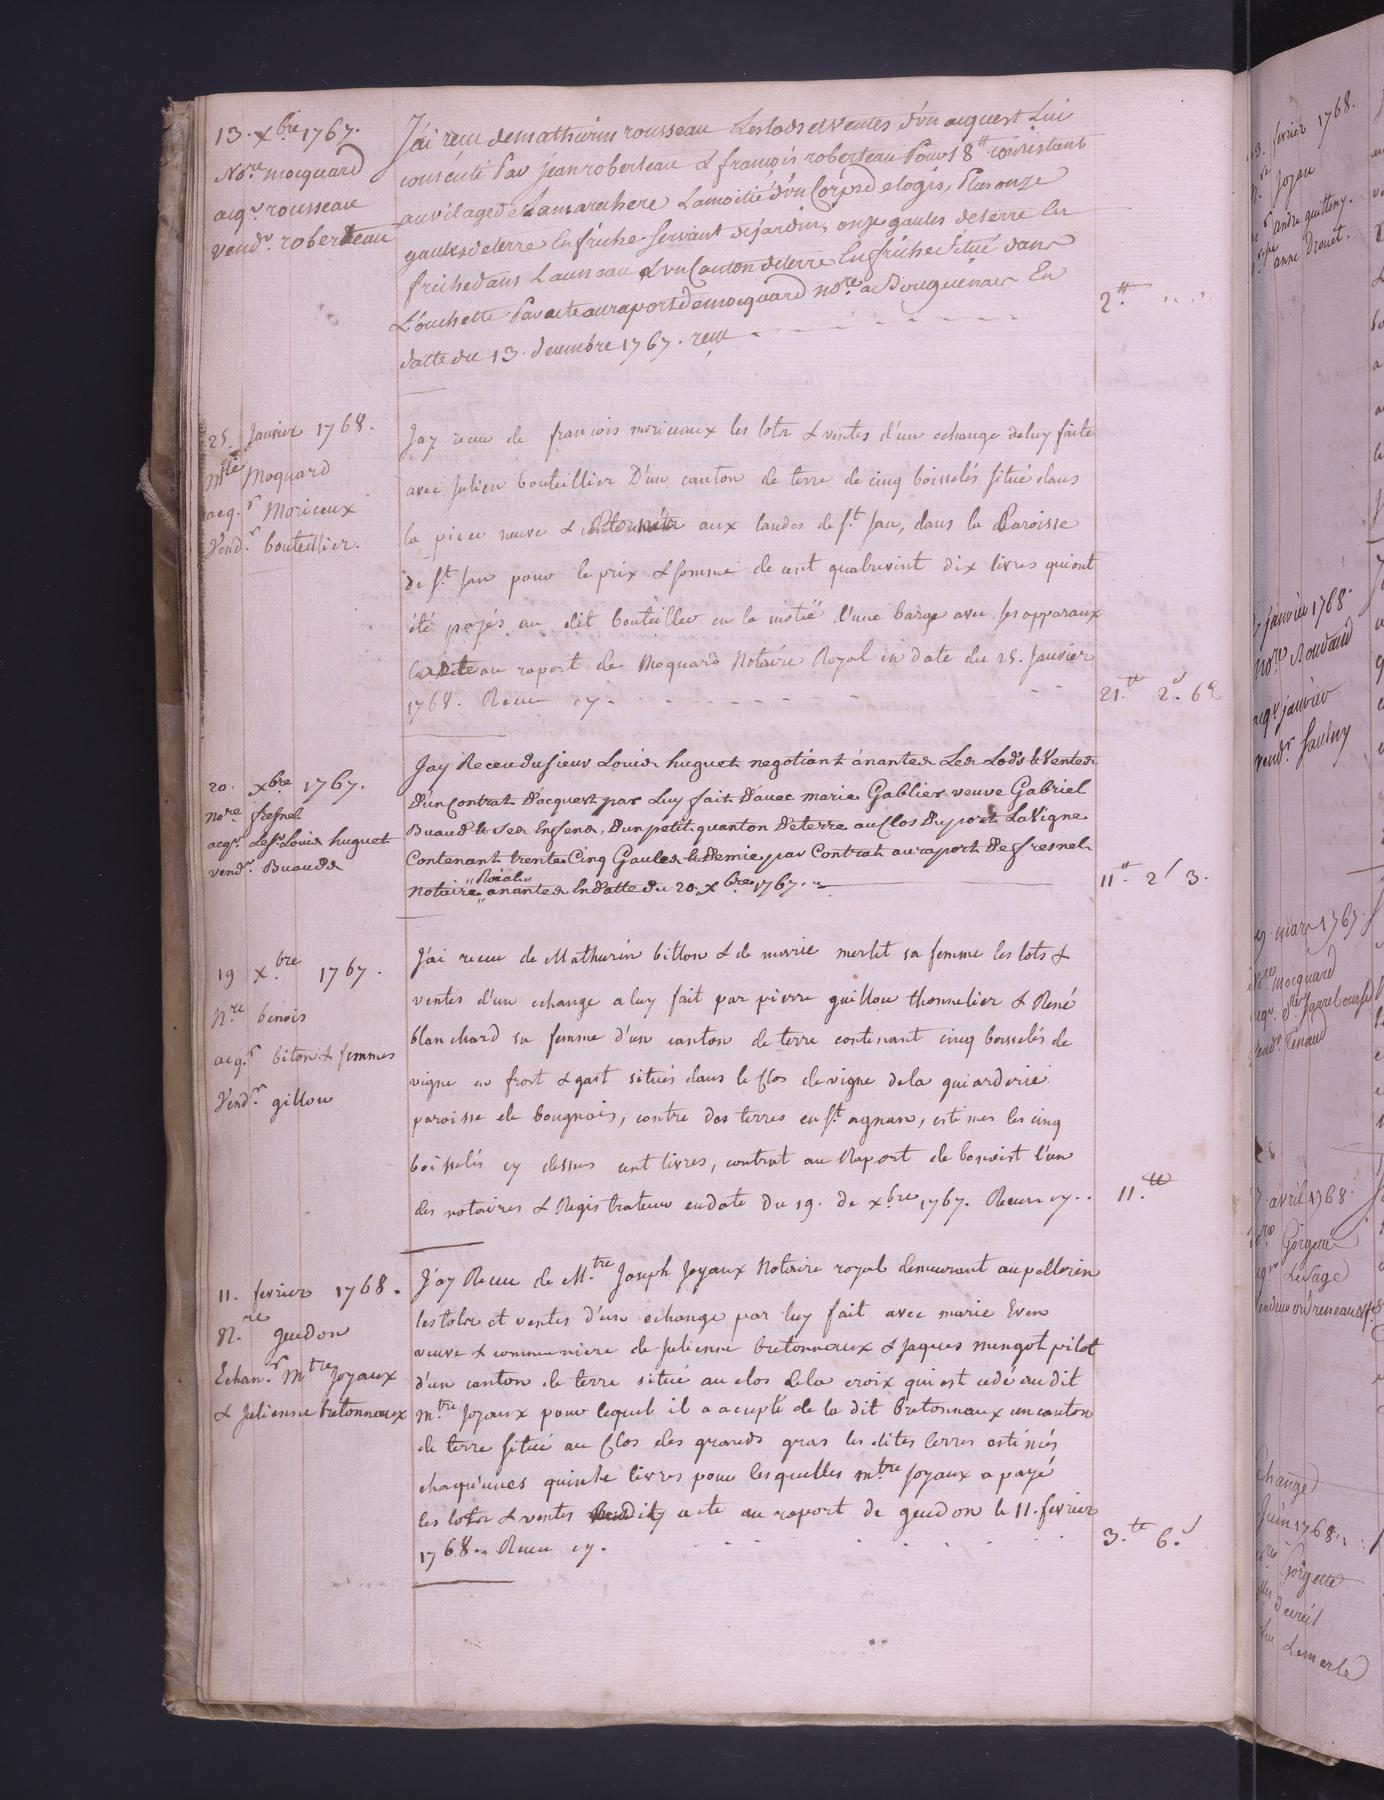 13. xbre 1767.
Nore mocquard
acqr rousseau
vendr roberteau
J'ai reçu de mathurin rousseau Les lods et ventes d'vn acquest Lui
consenti Par jean roberteau & françois roberteau Pour 18tt consistant
au vilage de Lamarchere Lamoitié d'vn Corps de logis, Plus onze
gaules de terre En friche servant de jardin, onze gaules de terre En
friche dans Launeau & vn Canton de terre En friche situé dans
L'ouchette Par acte au raport de mocquard nore a Bouguenais En
datte du 13. decembre 1767. reçu
2tt
25. Janvier 1768.
Moquard
acq.r Moriceux
Vend.r bouteillier.
Jay recue de francois moriceaux les lots & ventes d'un echange de luy faite
avec Julien bouteillier D'un canton de terre de cinq boisselés situé dans
la piece neuve & aux landes de st Jan, dans la Paroisse
de st Jan pour le prix & somme de cent quatrevint dix livres qui ont
été payés au dit bouteiller en la motié d'une barge avec ses apparaux
au raport de Moquard Notaire Royal en date du 25. Janvier
1768. Recue cy.
21.tt 2.s 6d
20. xbre 1767.
nore fresnel
acqr Le sr Louis huguet
vendr Buauds
Jay Receu du sieur Louis huguet negotiant a nantes Les Lods & Ventes
D'un Contrat D'acquest par Luy fait D'avec marie Gablier veuve Gabriel
Buaud & ses Enfens, D'un petit quanton De terre au Clos Du port La Vigne
Contenant trente Cinq Gaules & Demie par Contrat au raport De fresnel
Roial
notaire a nantes En datte du 20. xbre 1767.
11tt 2s 3.
19 x.bre 1767.
N.re benois
acq.r biton & femmes
Vend.r gillou
J'ai recue de Mathurin bitton & de marie merlet sa femme les lots &
ventes d'un echange a luy fait par pierre guillou thonnelier & René
blanchard sa femme d'un canton de terre contenant cinq boisselés de
vigne en frost & gast situés dans le Clos de vigne de la guiarderie
paroisse de bougnais, contre des terres en st agnan, estimés les cinq
boisselés cy dessus cent livres, contrat au Raport de benoist l'un
des notaires & Registrateur en date du 19. de x.bre 1767. Recue cy..
11.tt
11. fevrier 1768.
N.re guedon
Echan.r Mtre Joyaux
& Julienne bretonneaux
J'ay Recue de M.tre Joseph Joyaux Notaire royal demeurant au pellerin
les lots et ventes d'un echange par luy fait avec marie Even
veuve & communiere de Julienne bretonneaux & Jaques mengot pilot
d'un canton de terre situé au clos de la croix qui est cedé au dit
M.tre Joyaux pour lequel il a accepté de la dit bretonneaux un canton
de terre situé au Clos des grands gras les dites terres estimés
chaqu'unes quinze livres pour lesquelles mtre Joyaux a payé
les lots & ventes acte au raport de guedon le 11. fevrier
1768.. Recue cy.
3.tt 6.s
fevrier 1768.
Joyau
andré
anne Drouet.
janvier 1768.
Nore Rouaud
acqr janvier
vendr
mars 1767
mocquard
Renaud
avril 1768.
Gorgette
Lesage
Echange
Juin 1768.
Gorgette
Lemerle